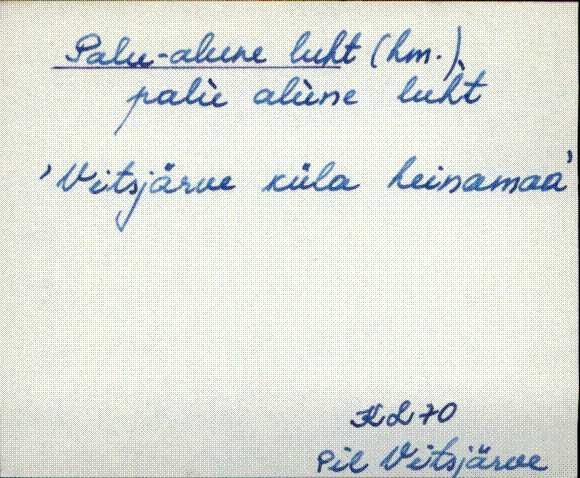 Palu-alune luht (hm.)
palù alùne luh̀t
'Vitsjärve küla heinamaa'
KL 70
Pil Vitsjärve